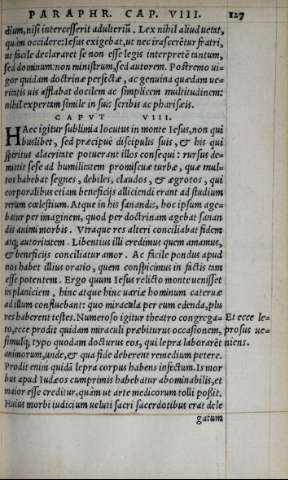 PARAPHR. CAP. VIII. 127
dium, nisi intercesserit adulteriũ. Lex nihil aliud uetat,
quàm occidere: Iesus exigebat, ut nec irasceretur fratri,
ut facile declararet se non esse legis interpretẽ tantum,
sed dominum: non ministrum, sed autorem. Postremo ui-
gor quidam doctrinæ perfectæ, ac genuina quædam ue-
ritatis uis afflabat docilem ac simplicem multitudinem:
nihil expertam simile in suis scribis ac pharisæis.
CAPVT VIII.
HAec igitur sublimia locutus in monte Iesus, non qui
buslibet, sed præcipue discipulis suis, & his qui
spiritus alacritate potuerant illos consequi: rursus de-
misit sese ad humilitatem promiscuæ turbæ, quæ mul-
tos habebat segnes, debiles, claudos, & ægrotos, qui
corporalibus etiam beneficijs alliciendi erant ad studium
rerum cœlestium. Atque in his sanandis, hoc ipsum age-
batur per imaginem, quod per doctrinam agebat sanan
dis animi morbis. Vtraque res alteri conciliabat fidem
atq; autoritatem. Libentius illi credimus quem amamus,
& beneficijs conciliatur amor. Ac facile pondus apud
nos habet illius oratio, quem conspicimus in factis tam
esse potentem. Ergo quum Iesus relicto monte uenisset
in planiciem, hinc atque hinc uariæ hominum cateruæ
ad illum confluebant: quo miracula per eum edenda, plu
res haberent testes. Numeroso igitur theatro congrega- Et ecce le-
to, ecce prodit quidam miraculi præbiturus occasionem, prosus ue-
simulq; typo quodam docturus eos, qui lepra laborarẽt niens.
animorum, unde, & qua fide deberent remedium petere.
Prodit enim quidã lepra corpus habens infectum. Is mor
bus apud Iudæos cumprimis habebatur abominabilis, et
maior esse creditur, quàm ut arte medicorum tolli possit.
Huius morbi iudicium ueluti sacri sacerdotibus erat dele
gatum